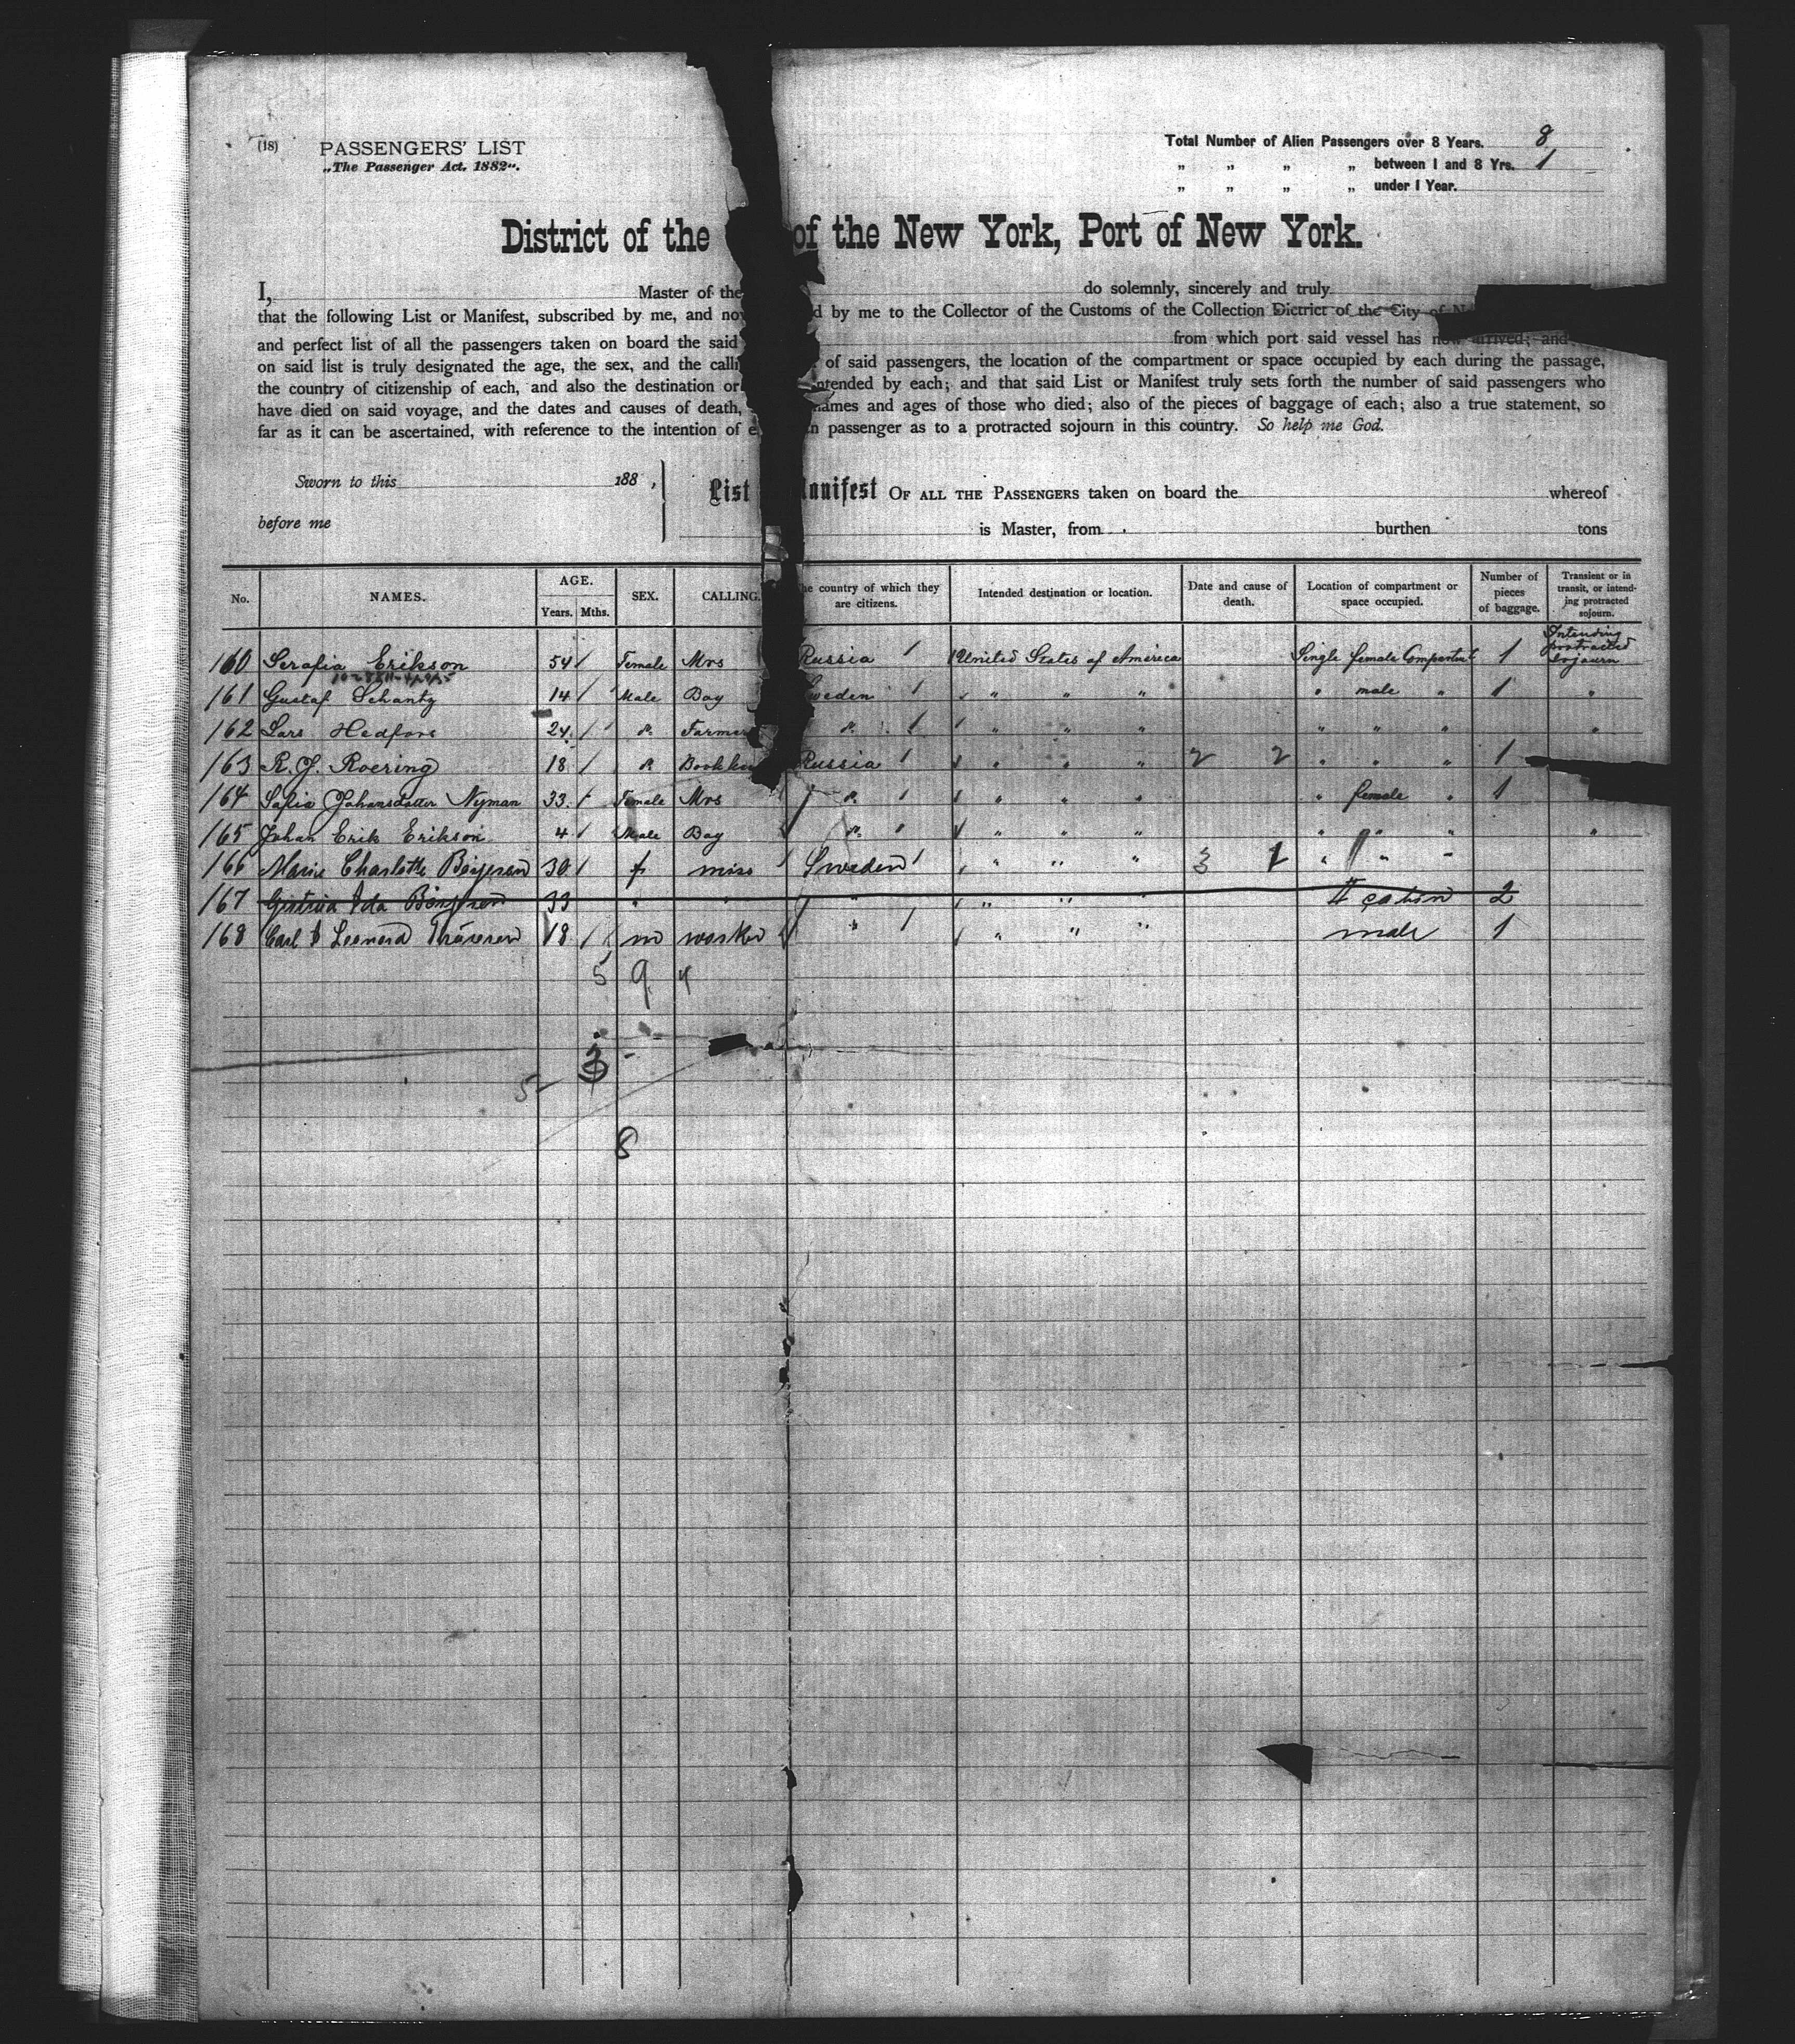 (18) PASSENGERS' LIST
„The Passenger Act, 1882".
Total Number of Alien Passengers over 8 Years. 8
„ „ „ „ between 1 and 8 Yrs. 1
„ „ „ „ under 1 Year.
District of the of the New York, Port of New York.
I, Master of the do solemnly, sincerely and truly
that the following List or Manifest, subscribed by me, and by me to the Collector of the Customs of the Collection District of the City of
and perfect list of all the passengers taken on board the said from which port said vessel has now arrived; and
on said list is truly designated the age, the sex, and the of said passengers, the location of the compartment or space occupied by each during the passage,
the country of citizenship of each, and also the destination or intended by each; and that said List or Manifest truly sets forth the number of said passengers who
have died on said voyage, and the dates and causes of death, names and ages of those who died; also of the pieces of baggage of each; also a true statement, so
far as it can be ascertained, with reference to the intention of passenger as to a protracted sojourn in this country. So help me God.
Sworn to this 188 ,
before me
List Manifest OF ALL THE PASSENGERS taken on board the whereof
is Master, from burthen tons
No. NAMES. AGE. Years. Mths. SEX. CALLING. The country of which they are citizens. Intended destination or location. Date and cause of death. Location of compartment or space occupied. Number of pieces of baggage. Transient or in transit, or intending protracted sojourn.
160 Serafia Erikson 54 Female Mrs Russia United States of America Single female Compartmt 1 Intending protracted Sojourn
161 Gustaf Schantz 14 Male Boy Sweden " " " " male " 1 "
162 Lars Hedfors 24 Farmer " " " " " " "
163 R. J. Roering 18 Russia " " " 2 2 " " " 1
164 Sofia Johansdotter Nyman 33 Female Mrs " " " " female " 1
165 Johan Erik Erikson 4 Male Boy " " " " " " "
166 Charlotte 30 f miss Sweden " " " 3 1 " "
167 Ida 33 " " " " " " II cabin 2
168 Carl Leonard 18 m worker " " " " male 1
5 9 4
3
5
8